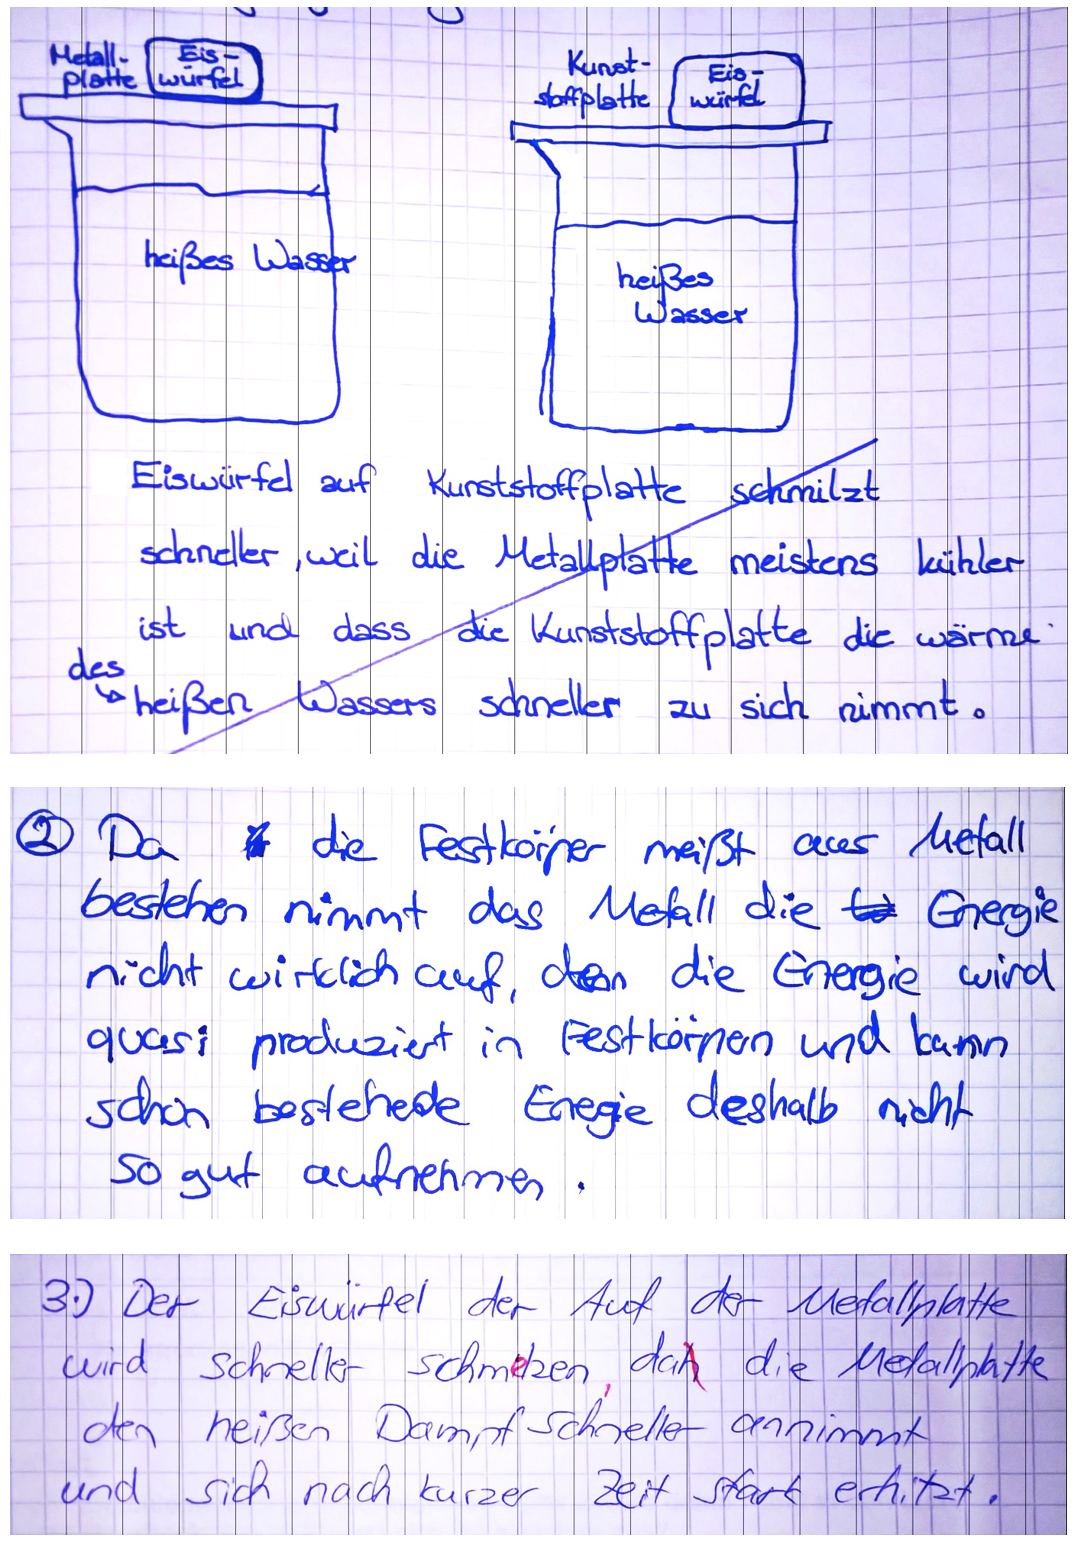 Metall-
platte
Eis-
würfel
heißes Wasser
Kunst-
stoffplatte
Eis-
würfel
heißes
Wasser
Eiswürfel auf Kunststoffplatte schmilzt
schneller, weil die Metallplatte meistens kühler
ist und dass die Kunststoffplatte die wärme
des
heißen Wassers schneller zu sich nimmt.
② Da die Festkörper meißt aus Metall
bestehen nimmt das Metall die Energie
nicht wirklich auf, den die Energie wird
quasi produziert in Festkörpern und kann
schon bestehede Energie deshalb nicht
so gut aufnehmen.
3.) Der Eiswürfel der Auf der Metallplatte
wird schneller schmelzen, da die Metallplatte
den heißen Dampf schneller annimmt
und sich nach kurzer Zeit stark erhitzt.